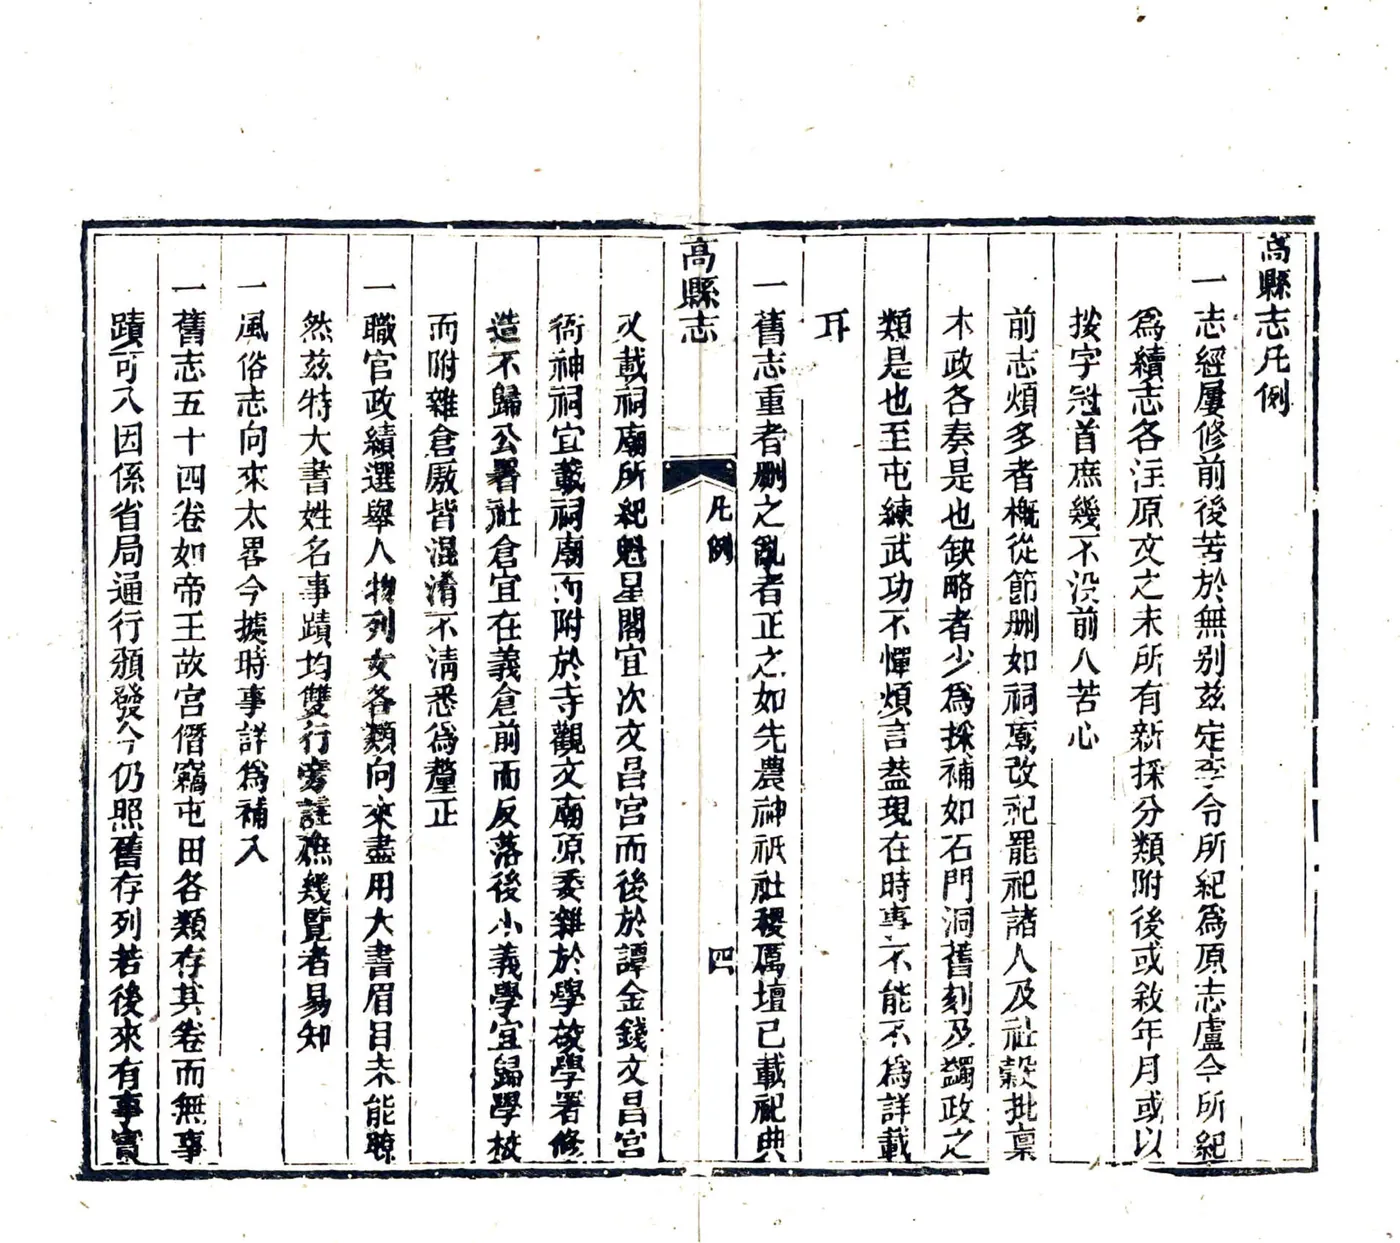 高縣志凡例
一志經屢修前後苦於無别兹定李令所紀爲原志盧令所紀
爲續志各注原文之末所有新採分類附後或敘年月或以
按字冠首庶幾不没前人苦心
前志煩多者槪從節删如祠廟改祀罷祀諸人及社穀批稟
木政各奏是也缺略者少爲採補如石門洞舊刻及蠲政之
類是也至屯練武功不憚煩言葢現在時事不能不爲詳載
耳
一舊志重者删之亂者正之如先農神祇社稷厲壇已載祀典
高縣志
凡例
四
又載祠廟所紀魁星閣宜次文昌宮而後於譚金錢文昌宮
衙神祠宜載祠廟而附於寺觀文廟原委雜於學校學署修
造不歸公署社倉宜在義倉前而反落後小義學宜歸學校
而附雜倉廒皆混淆不清悉爲釐正
一職官政績選舉人物列女各類向來盡用大書眉目未能瞭
然兹特大書姓名事蹟均雙行旁註庶幾覽者易知
一風俗志向來太畧今據時事詳爲補入
一舊志五十四卷如帝王故宮僭竊屯田各類存其卷而無事
蹟可入因係省局通行頒發今仍照舊存列若後來有事實